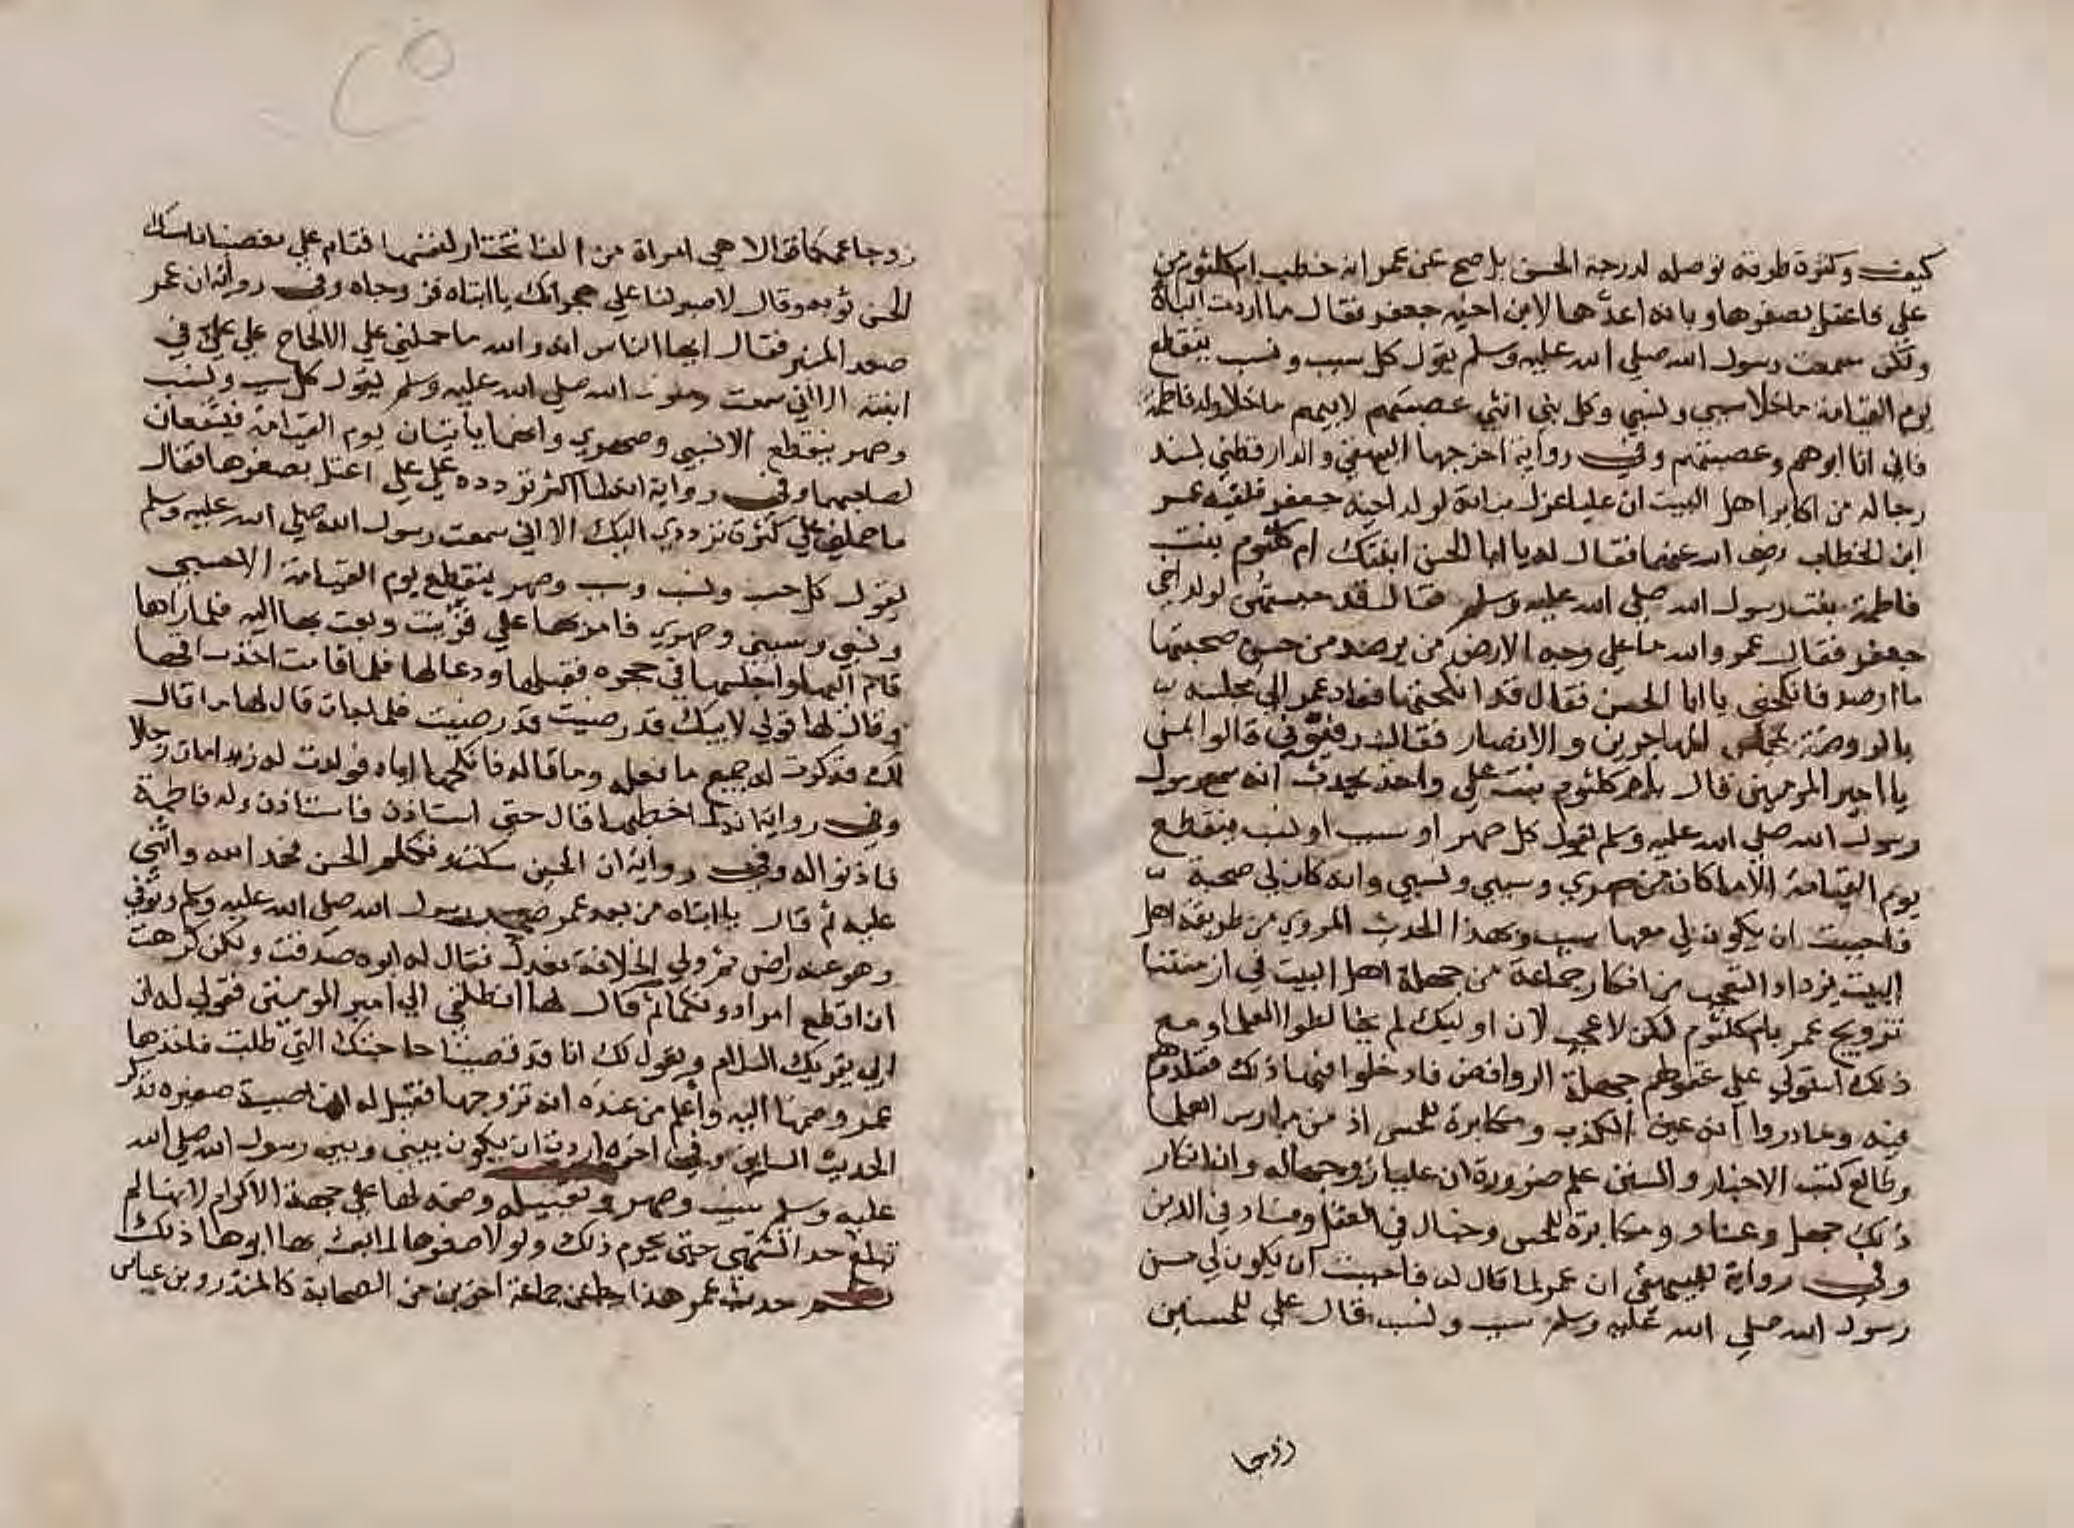 كيف وكثرة طرقه توصله لدرجة الحسن بل صح عن عمر انه خطب ام كلثوم من
علي فاعتل بصغرها وبانه اعدها لابن اخيه جعفر فقال ما اردت الباة
ولكن سمعت رسول الله صلي الله عليه وسلم يقول كل سبب ونسب ينقطع
يوم القيامة ما خلا سببي ونسبي وكل بني انثي عصبتهم لابيهم ما خلا ولد فاطمة
فاني انا ابوهم وعصبتهم وفي رواية اخرجها البيهقي والدارقطني بسند
رجاله من اكابر اهل البيت ان عليا عزل بناته لولد اخيه جعفر فلقيه عمر
ابن الخطاب رضي الله عنهما فقال له يا ابا الحسن انكحني ابنتك ام كلثوم بنت
فاطمة بنت رسول الله صلي الله عليه وسلم فقال قد حبستهن لولد اخي
جعفر فقال عمر والله ما علي وجه الارض من يرصد من حسن صحبتها
ما ارصد فانكحني يا ابا الحسن فقال قد انكحتها فعاد عمر الي مجلسه
بالروضة مجلس المهاجرين والانصار فقال رفئوني قالوا بمن
يا امير المومنين قال بام كلثوم بنت علي واخذ يحدث انه سمع رسول
رسول الله صلي الله عليه وسلم يقول كل صهر او سبب او نسب ينقطع
يوم القيامة الا ما كان من صهري وسببي ونسبي وانه كان لي صحبة
فاحببت ان يكون لي معها سبب وبهذا الحديث المروي من طريقة اهل
البيت يزداد التعجب من انكار جماعة من جهلة اهل البيت في ازمنتنا
تزويج عمر بام كلثوم لكن لا عجب لان اوليك لم يخالطوا العلما ومع
ذلك استولي علي عقولهم جهلة الروافض فادخلوا فيها ذلك فقلدوهم
فيه وما دروا انه عين الكذب ومكابرة للحس اذ من مارس العلما
وطالع كتب الاخبار والسنن علم ضرورة ان عليا زوجها له وان انكار
ذلك جهل وعناد ومكابرة للحس وخبال في العقل وفساد في الدين
وفي رواية للبيهقي ان عمر لما قال له فاحببت ان يكون لي من
رسول الله صلي الله عليه وسلم سبب ونسب قال علي للحسنين
زوجا
زوجا عمكما فقالا هي امراة من النسا تختار لنفسها فقام علي مغضبا فامسك
الحسن ثوبه وقال لا صبر لنا علي هجرانك يا ابتاه فزوجاه وفي رواية ان عمر
صعد المنبر فقال ايها الناس انه والله ما حملني علي الالحاح علي علي في
ابنته الا اني سمعت رسول الله صلي الله عليه وسلم يقول كل سبب ونسب
وصهر ينقطع الا نسبي وصهري وانهما ياتيان يوم القيامة فيشفعان
لصاحبهما وفي رواية انه لما اكثر تردده علي علي اعتل بصغرها فقال
ما حملني علي كثرة ترددي اليك الا اني سمعت رسول الله صلي الله عليه وسلم
يقول كل حسب ونسب وسبب وصهر ينقطع يوم القيامة الا حسبي
ونسبي وسببي وصهري فامر بها علي فزينت وبعث بها اليه فلما راها
قام اليها واجلسها في حجره فقبلها ودعا لها فلما قامت اخذ بساقها
وقال لها قولي لابيك قد رضيت قد رضيت فلما جات قال لها ما قال
لك فذكرت له جميع ما فعله وما قاله فانكحها اياه فولدت له زيدا مات رجلا
وفي رواية انه لما خطبها قال حتي استاذن فاستاذن ولد فاطمة
فاذنوا له وفي رواية ان الحسين سكت وتكلم الحسن فحمد الله واثني
عليه ثم قال يا ابتاه من بعد عمر صحب رسول الله صلي الله عليه وسلم وتوفي
وهو عنه راض ثم ولي الخلافة فعدل فقال له ابوه صدقت ولكن كرهت
ان اقطع امرا دونكما ثم قال لها انطلقي الي امير المومنين فقولي له ان
ابي يقريك السلام ويقول لك انا قد قضينا حاجتك التي طلبت فاخذها
عمر وضمها اليه واعلم من عنده انه تزوجها فقيل له انها صبية صغيرة فذكر
الحديث السابق وفي اخره اردت ان يكون بيني وبين رسول الله صلي الله
عليه وسلم سبب وصهر وتقبيله وضمه لها علي جهة الاكرام لانها لم
تبلغ حدا تشتهي حتي يحرم ذلك ولولا صغرها لما بعث بها ابوها ذلك
حديث عمر هذا جا عن جماعة اخرين من الصحابة كالمنذر وبن عباس